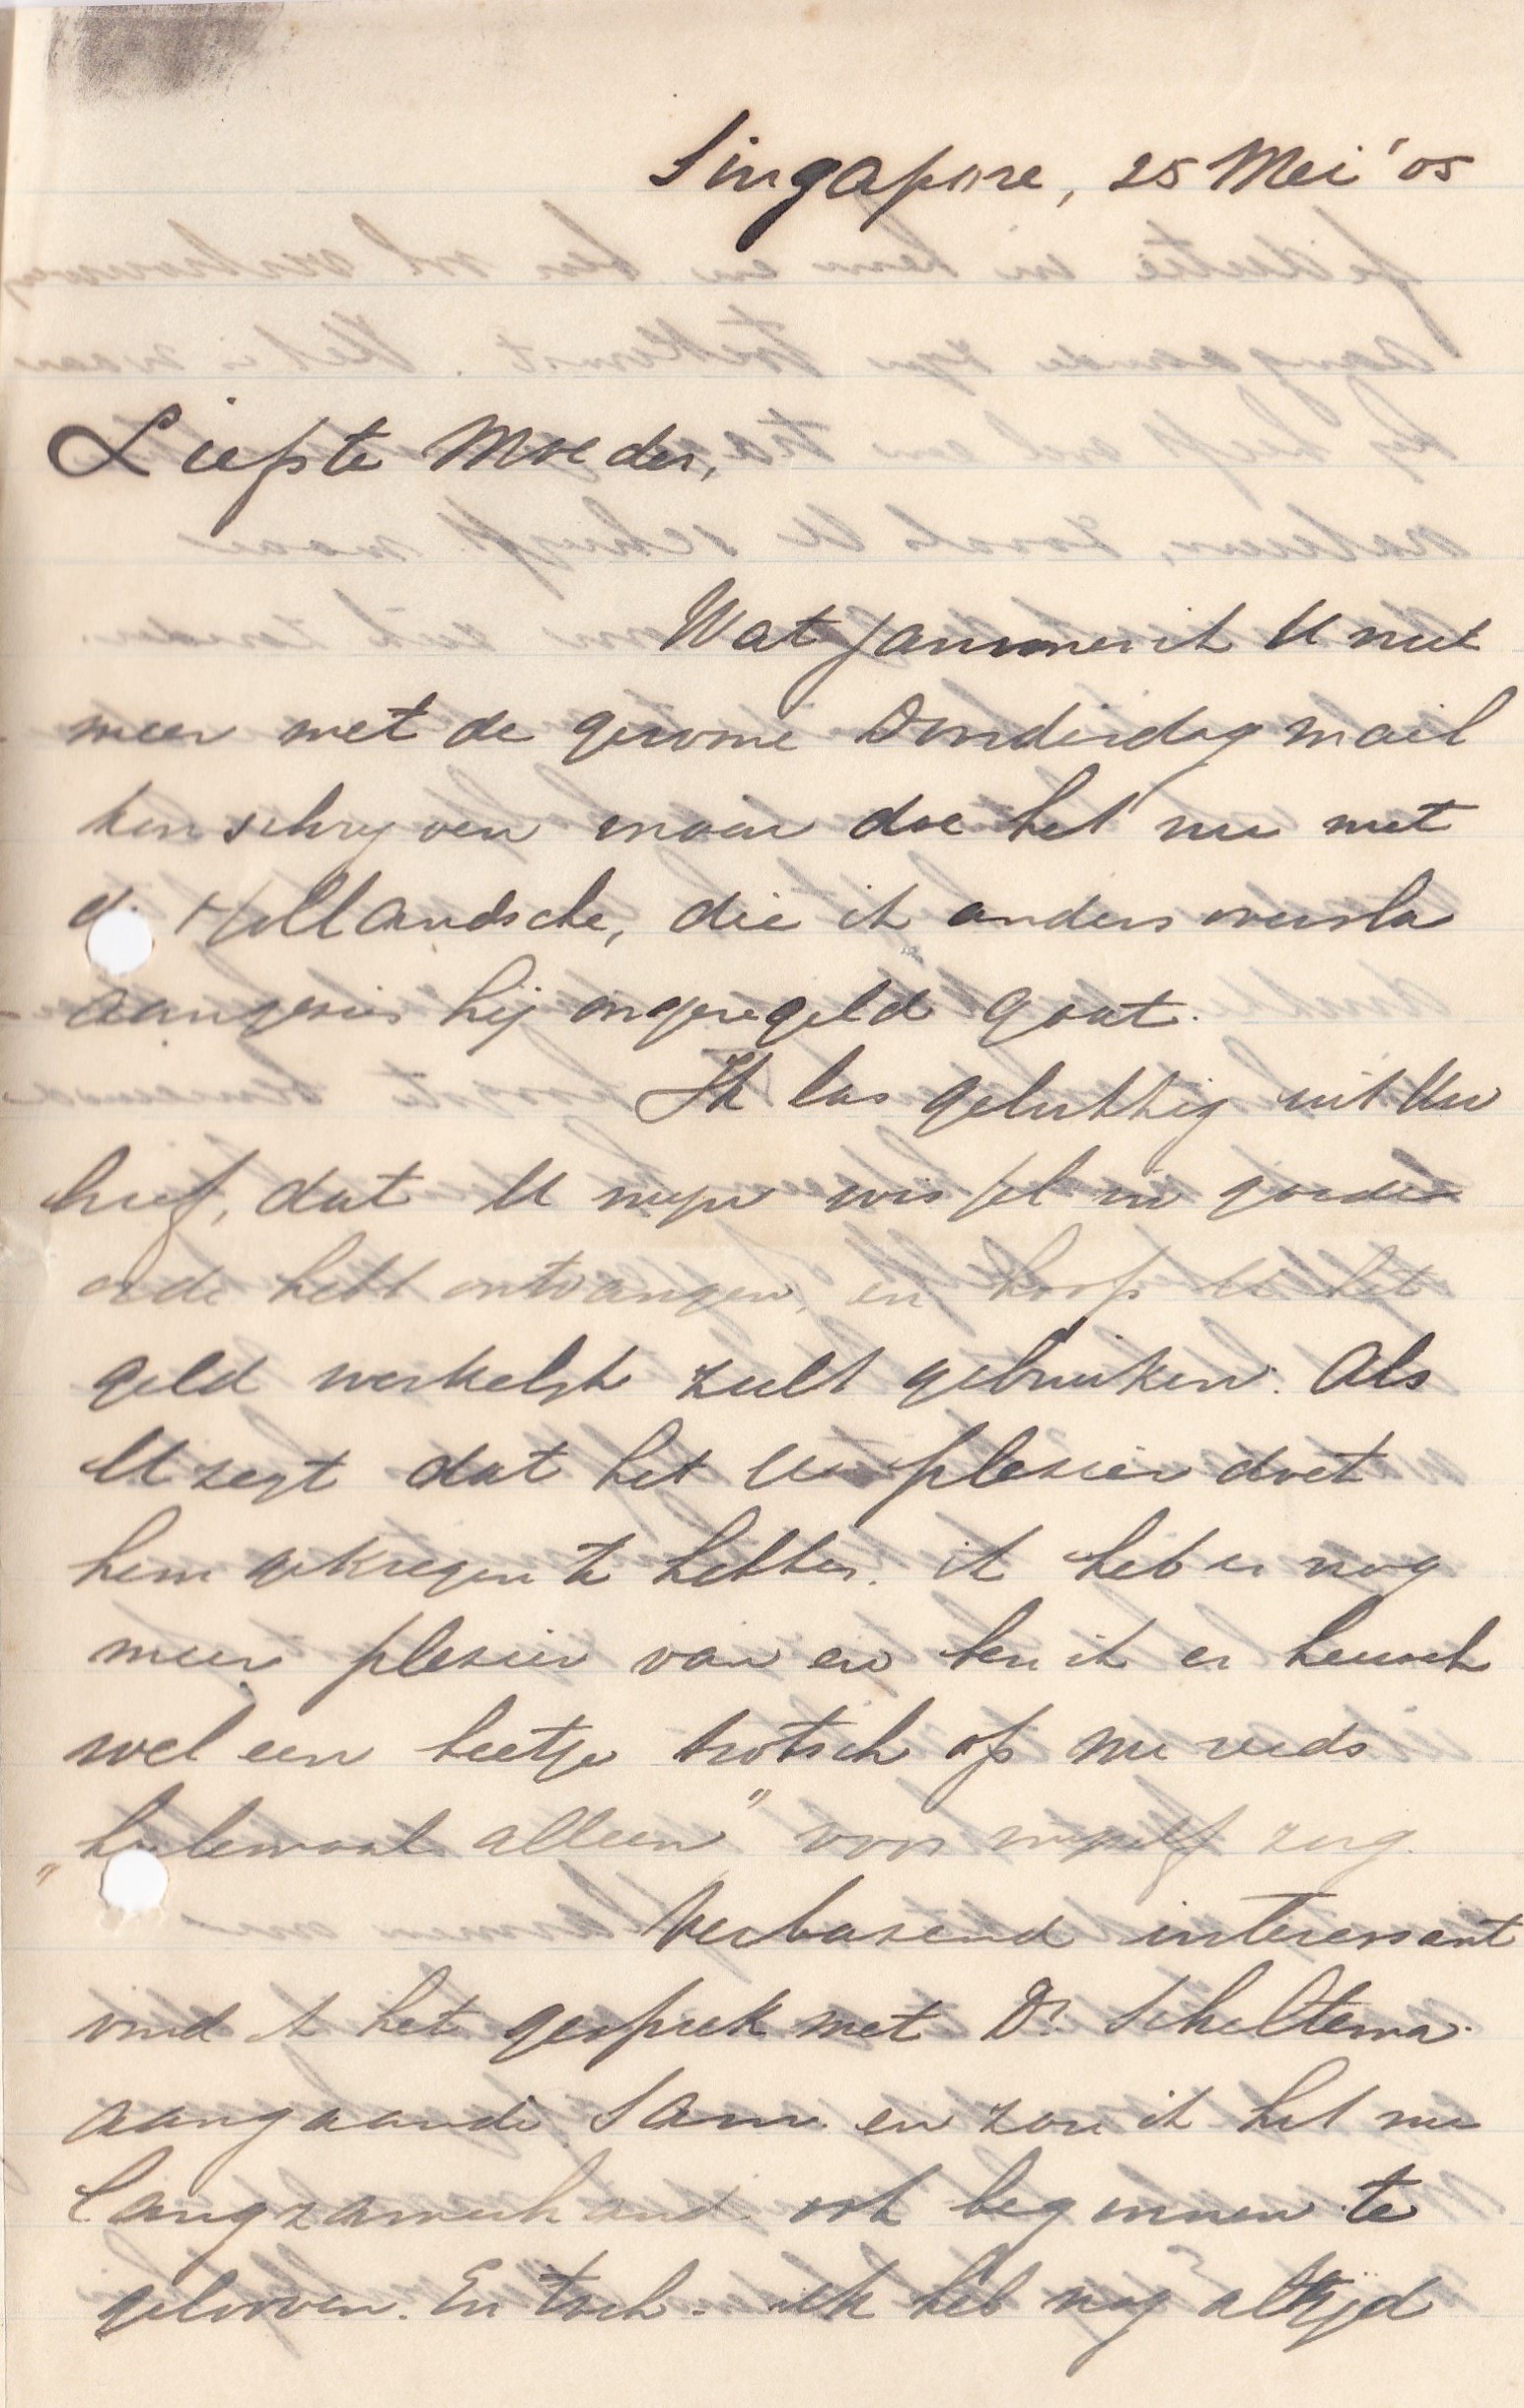 Singapore, 25 Mei '05
Liefste Moeder,
Wat jammer ik U niet
meer met de gewone Donderdag mail
kon schryven maar doe het nu met
de Hollandsche, die ik anders oversla
aangezien hij ongeregeld gaat.
Ik las gelukkig uit Uw
brief, dat U myn wissel in goede
orde hebt ontvangen, en hoop U het
geld werkelyk zult gebruiken. Als
U zegt dat het U plezier doet
hem gekregen te hebben, ik heb er nog
meer plezier van en ben ik er heusch
wel een beetje trotsch op nu reeds
„heelemaal alleen" voor myzelf zorg.
Verbazend interessant
vind ik het gesprek met Dr. Scheltema
aangaande Sam en zou ik het nu
langzamerhand ook beginnen te
gelooven. En toch - ik heb nog altyd